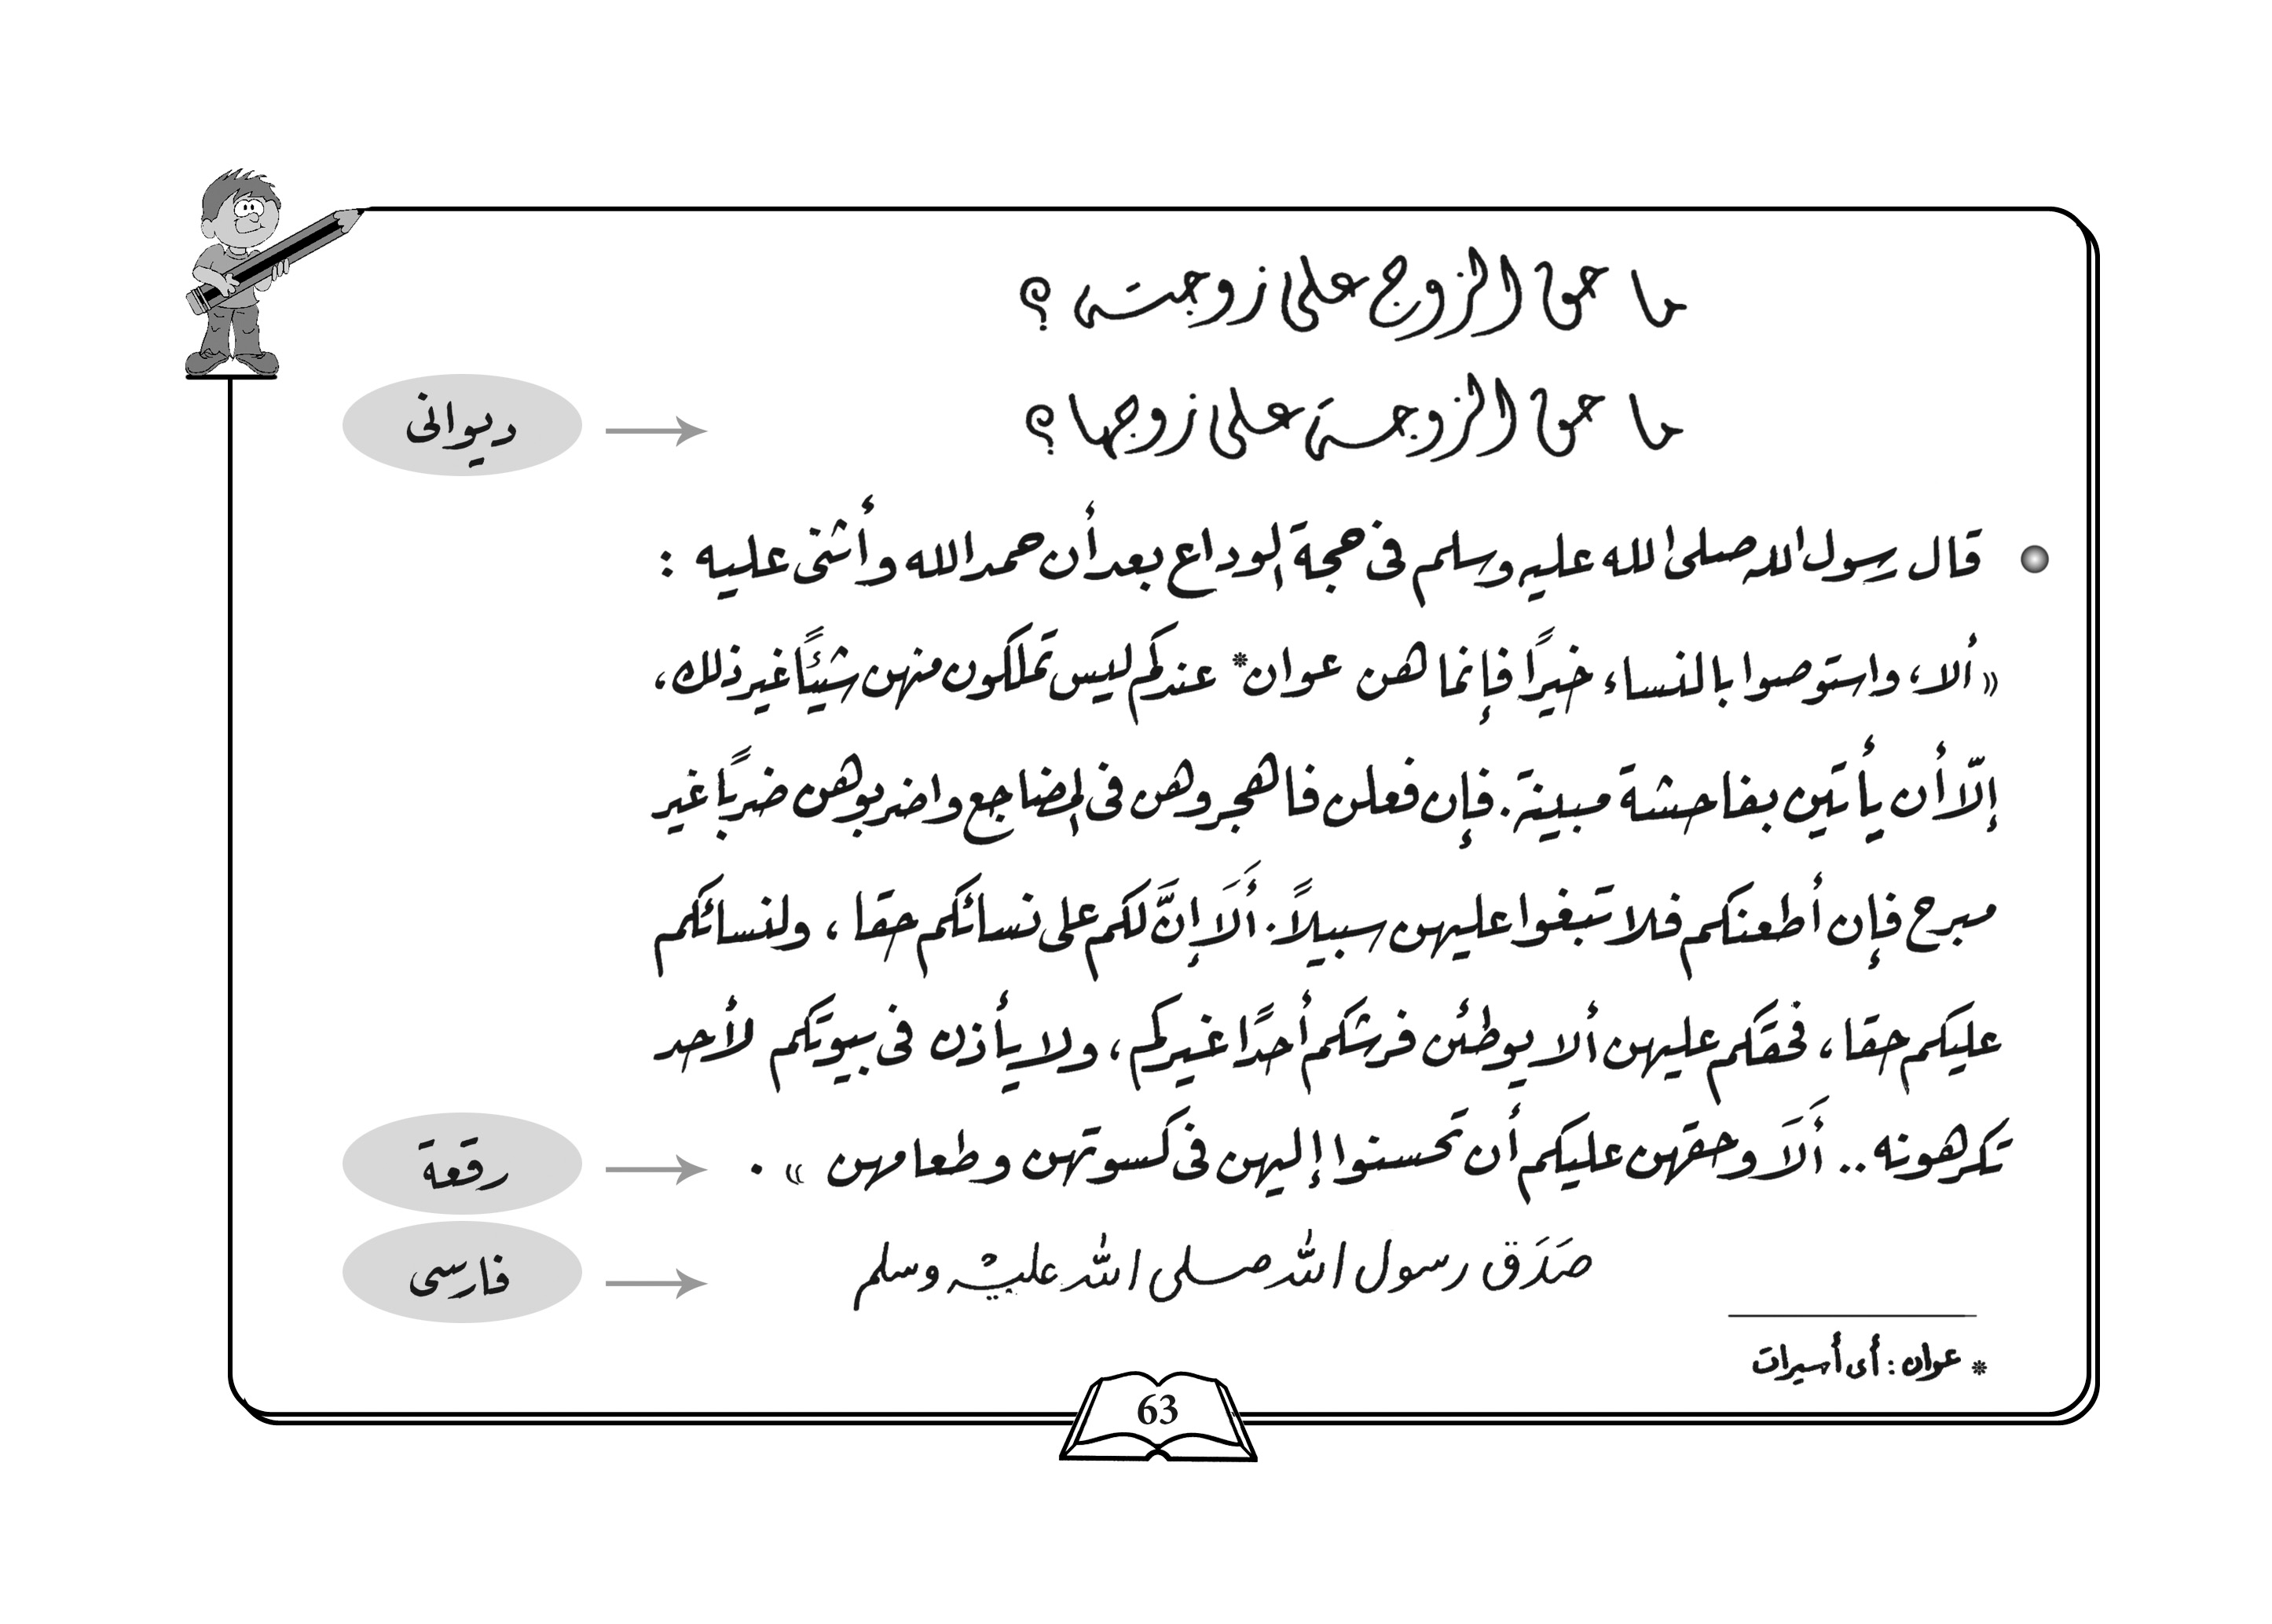 ما حق الزوج على زوجته ؟
ما حق الزوجة على زوجها ؟
ديوانى
قال رسول الله صلى الله عليه وسلم فى حجة الوداع بعد أن حمد الله وأثنى عليه :
« ألا ، واستوصوا بالنساء خيرًا فإنما هن عوان* عندكم ليس تملكون منهن شيئًا غير ذلك ،
إلّا أن يأتين بفاحشة مبينة . فإن فعلن فاهجروهن فى المضاجع واضربوهن ضربًا غير
مبرح فإن أطعنكم فلا تبغوا عليهن سبيلاً . ألَا إنَّ لكم على نسائكم حقا ، ولنسائكم
عليكم حقا ، فحقكم عليهن ألا يوطئن فرشكم أحدًا غيركم ، ولا يأذن فى بيوتكم لأحد
تكرهونه .. أَلَا وحقهن عليكم أن تحسنوا إليهن فى كسوتهن وطعامهن » .
رقعة
صَدَق رسول الله صلى الله عليه وسلم
فارسى
* عوان : أى أسيرات
63